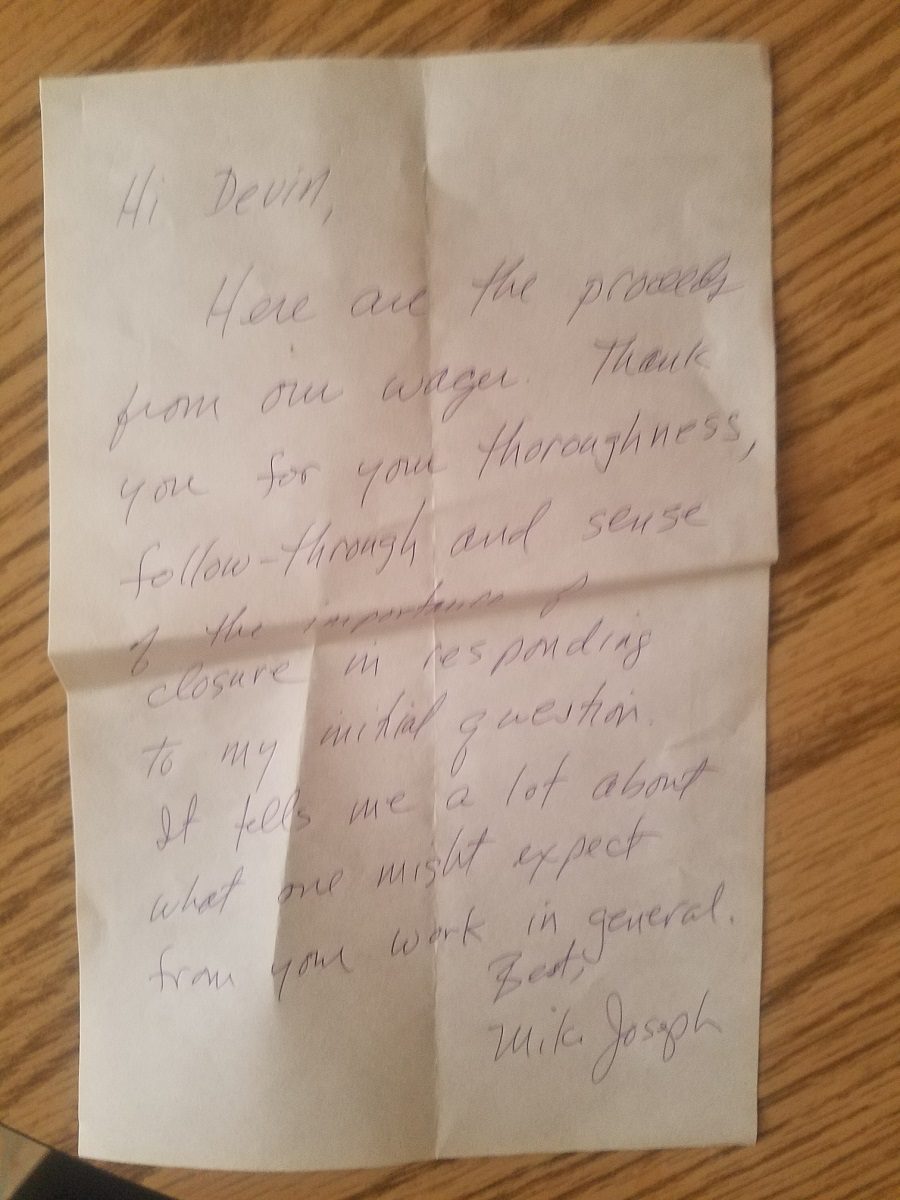 Hi Devin,
Here are the proceeds
from our wager. Thank
you for your thoroughness,
follow-through and sense
of the importance of
closure in responding
to my initial question.
It tells me a lot about
what one might expect
from your work in general.
Best,
Mike Joseph